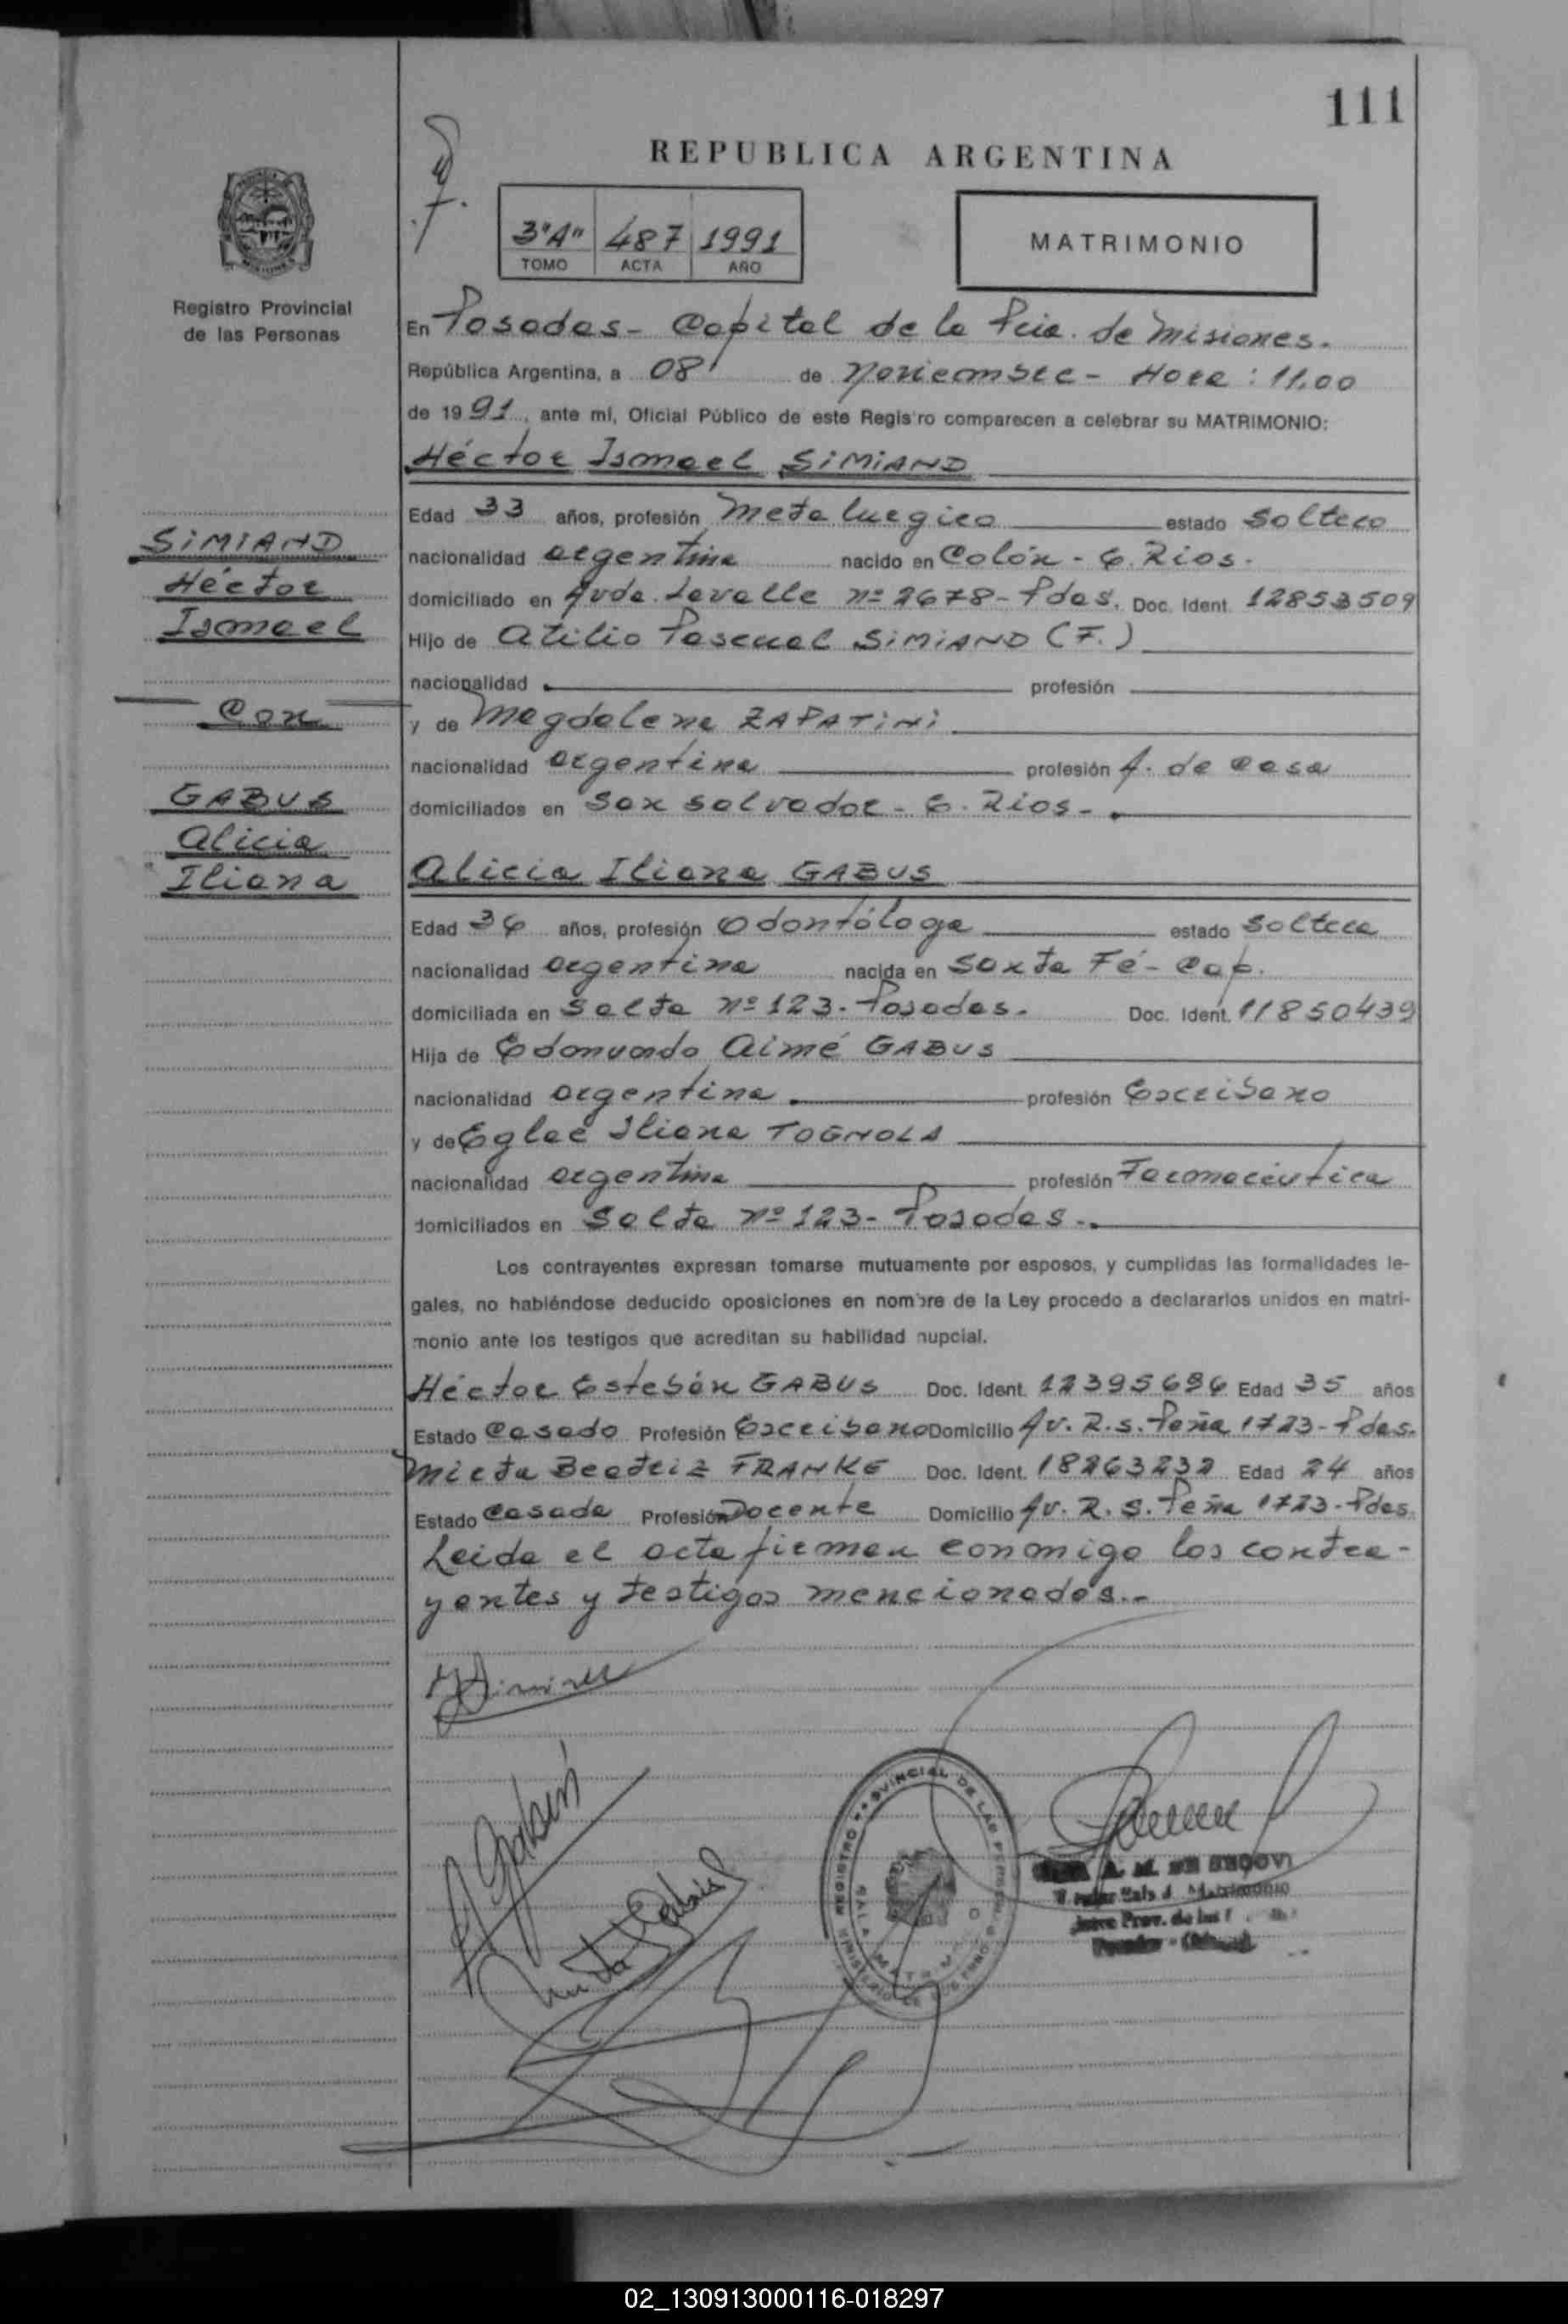 111
REPUBLICA ARGENTINA
3"A" 487 1991
TOMO ACTA AÑO
MATRIMONIO
Registro Provincial
de las Personas
En Posadas - Capital de la Pcia. de Misiones.
República Argentina, a 08 de Noviembre - Hora: 11.00
de 1991, ante mí, Oficial Público de este Registro comparecen a celebrar su MATRIMONIO:
Héctor Ismael SIMIAND
Edad 33 años, profesión Metalurgico estado Soltero
nacionalidad argentina nacido en Colón - E. Rios.
domiciliado en Avda. Lavalle Nº 2678 - Pdas. Doc. Ident. 12853509
Hijo de Atilio Pascual SIMIAND (F.)
nacionalidad profesión
y de Magdalena ZAPATINI
nacionalidad argentina profesión A. de casa
domiciliados en San Salvador - E. Rios -.
SIMIAND
Héctor
Ismael
Con
GABUS
Alicia
Iliana
Alicia Iliana GABUS
Edad 36 años, profesión Odontóloga estado Soltera
nacionalidad argentina nacida en Santa Fé - Cap.
domiciliada en Salta Nº 123 - Posadas. Doc. Ident. 11850439
Hija de Edonvardo Aimé GABUS
nacionalidad argentina. profesión Escribano
y de Eglae Iliana TOGNOLA
nacionalidad argentina profesión Farmacéutica
domiciliados en Salta Nº 123 - Posadas -.
Los contrayentes expresan tomarse mutuamente por esposos, y cumplidas las formalidades le-
gales, no habiéndose deducido oposiciones en nombre de la Ley procedo a declararlos unidos en matri-
monio ante los testigos que acreditan su habilidad nupcial.
Héctor Estebán GABUS Doc. Ident. 12395696 Edad 35 años
Estado Casado Profesión Escribano Domicilio Av. R. S. Peña 1723 - Pdas.
Mirta Beatriz FRANKE Doc. Ident. 18263232 Edad 24 años
Estado Casada Profesión Docente Domicilio Av. R. S. Peña 1723 - Pdas.
Leida el acta firman conmigo los contra-
yentes y testigos mencionados.-
REGISTRO PROVINCIAL DE LAS
A. M. DE SEGOVI
02_130913000116-018297